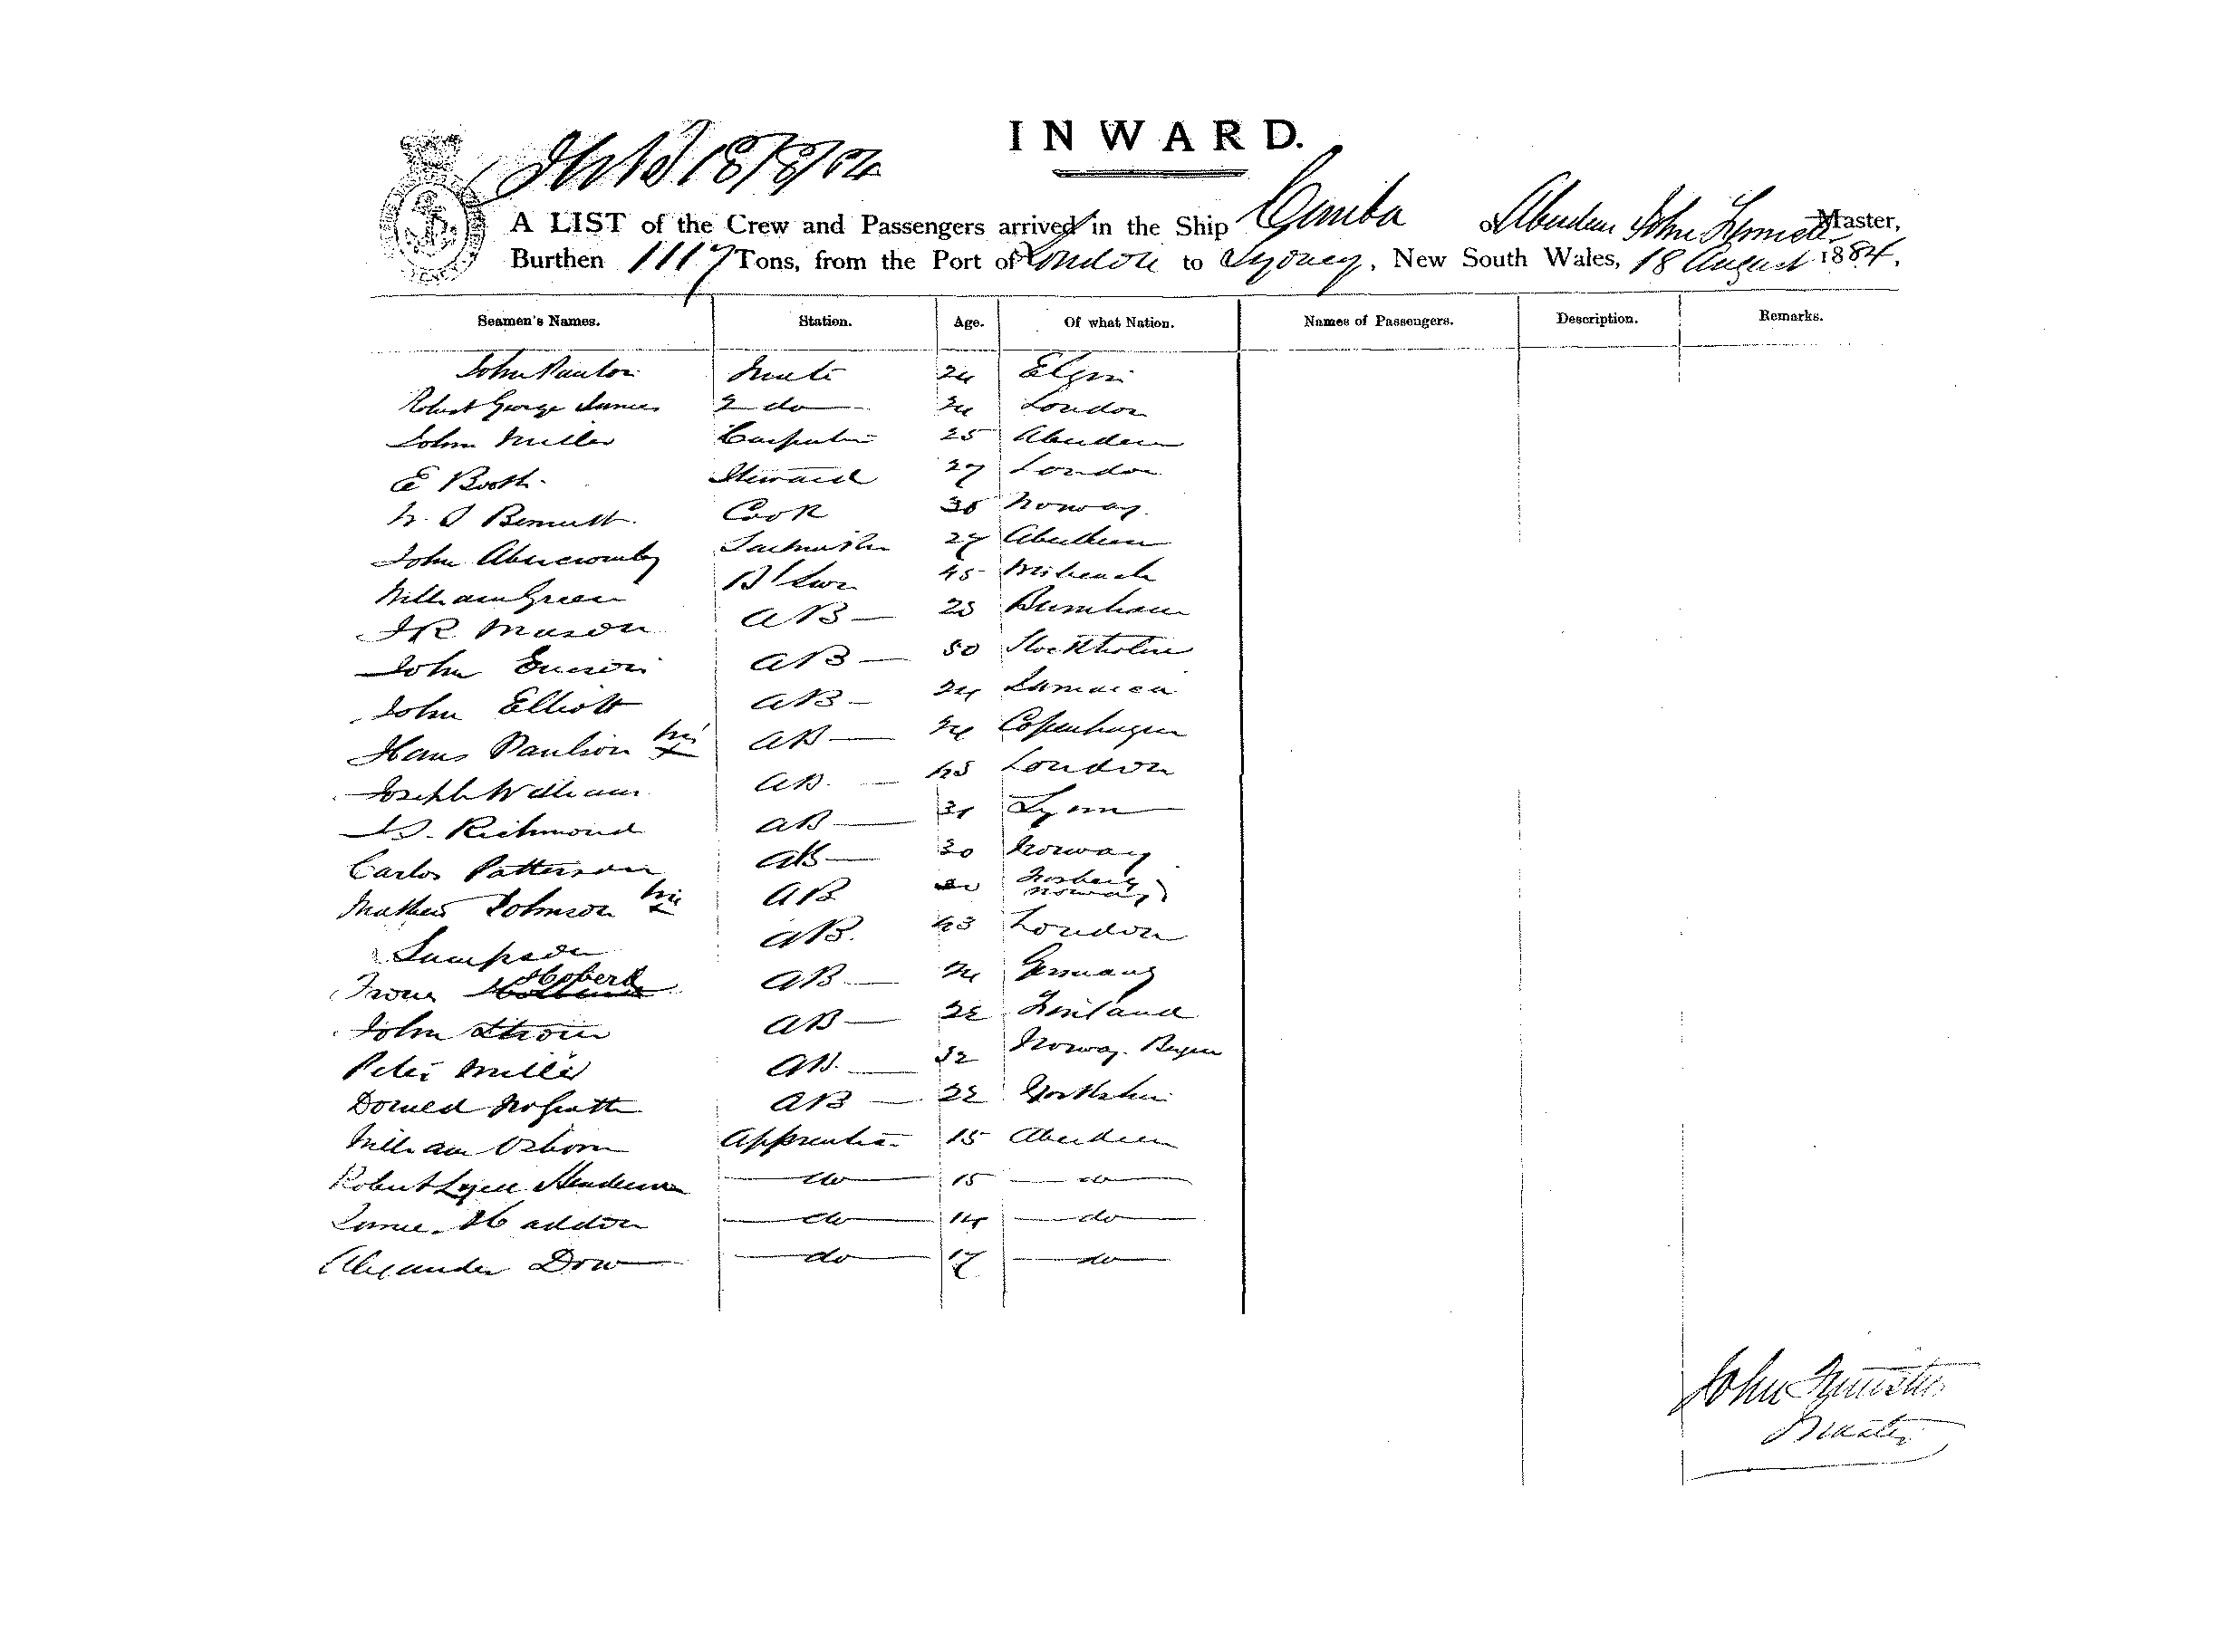 INWARD.
A LIST of the Crew and Passengers arrived in the Ship of Aberdeen John Master,
Burthen 1117 Tons, from the Port of London to Sydney, New South Wales, 18 August 1884.
Seamen's Names. Station. Age. Of what Nation. Names of Passengers. Description. Remarks.
John Mate 24 Elgin
Robert George James 2 do 24 London
John Miller Carpenter 25 Aberdeen
E Booth Steward 27 London
Bennett Cook Norway
John Abercromby Sailmaker 27 Aberdeen
William Green 45
J R Mason AB 25 Burnham
John AB 50 Stockholm
John Elliott AB 24 Jamaica
Hans Paulson his x AB 24 Copenhagen
Joseph William AB 45 London
Richmond AB 31 Lynn
Carlos Patterson AB 30 Norway
Mathew Johnson his x AB Norway
Sampson AB. 43 London
AB 24 Germany
John AB 22 Finland
Peter Miller AB. 32 Norway. Bergen
Donald AB 22 Yorkshire
William Osborn Apprentice 15 Aberdeen
Robert Lyell Henderson do 15 do
James Haddon do 14 do
Alexander Dow do 17 do
John
Master